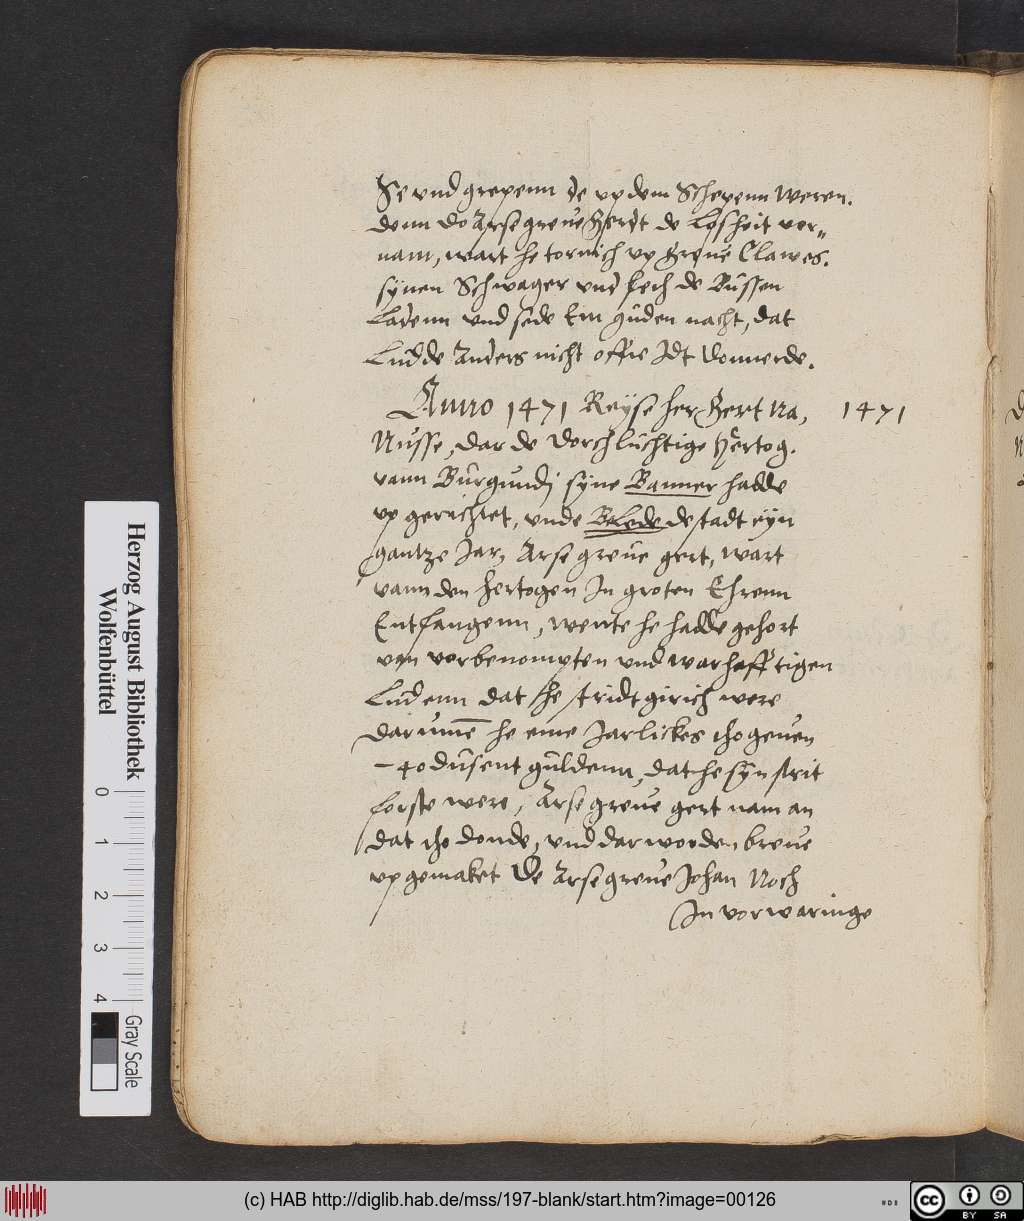 Se und grepenn de up dem Schepenn weren.
denn do Arse greve Gerdt de Losheit ver„
nam, wart he tornich up Greve Clawes.
synen Schwager und sech de Büssen
ladenn und sede Ein guden nacht, dat
Ludde Anders nicht offte Idt donnerde.
Anno 1471 Reyse her Gert na, 1471
Nusse, dar de dorchluchtige Hertog.
vann Burgundj syne Banner hadde
up gerichtet, unde Belede de stadt eyn
gantze Jar, Arse greve gert, wart
vann den hertogen In groten Ehrenn
Entfangenn, wente he hadde gehort
van vorbenompten und warhafftigen
Ludenn dat he stridtgirich were
darumē he eme Jarlickes tho geven
– 40 dusent guldenn, dat he syn strit
forste were, Arse greve gert nam an
dat tho donde, und dar worden breve
up gemaket De Arse greve Johan Noch
In vorwaringe
Herzog August Bibliothek
Wolfenbüttel
0 1 2 3 4
Gray Scale
(c) HAB http://diglib.hab.de/mss/197-blank/start.htm?image=00126
cc BY SA